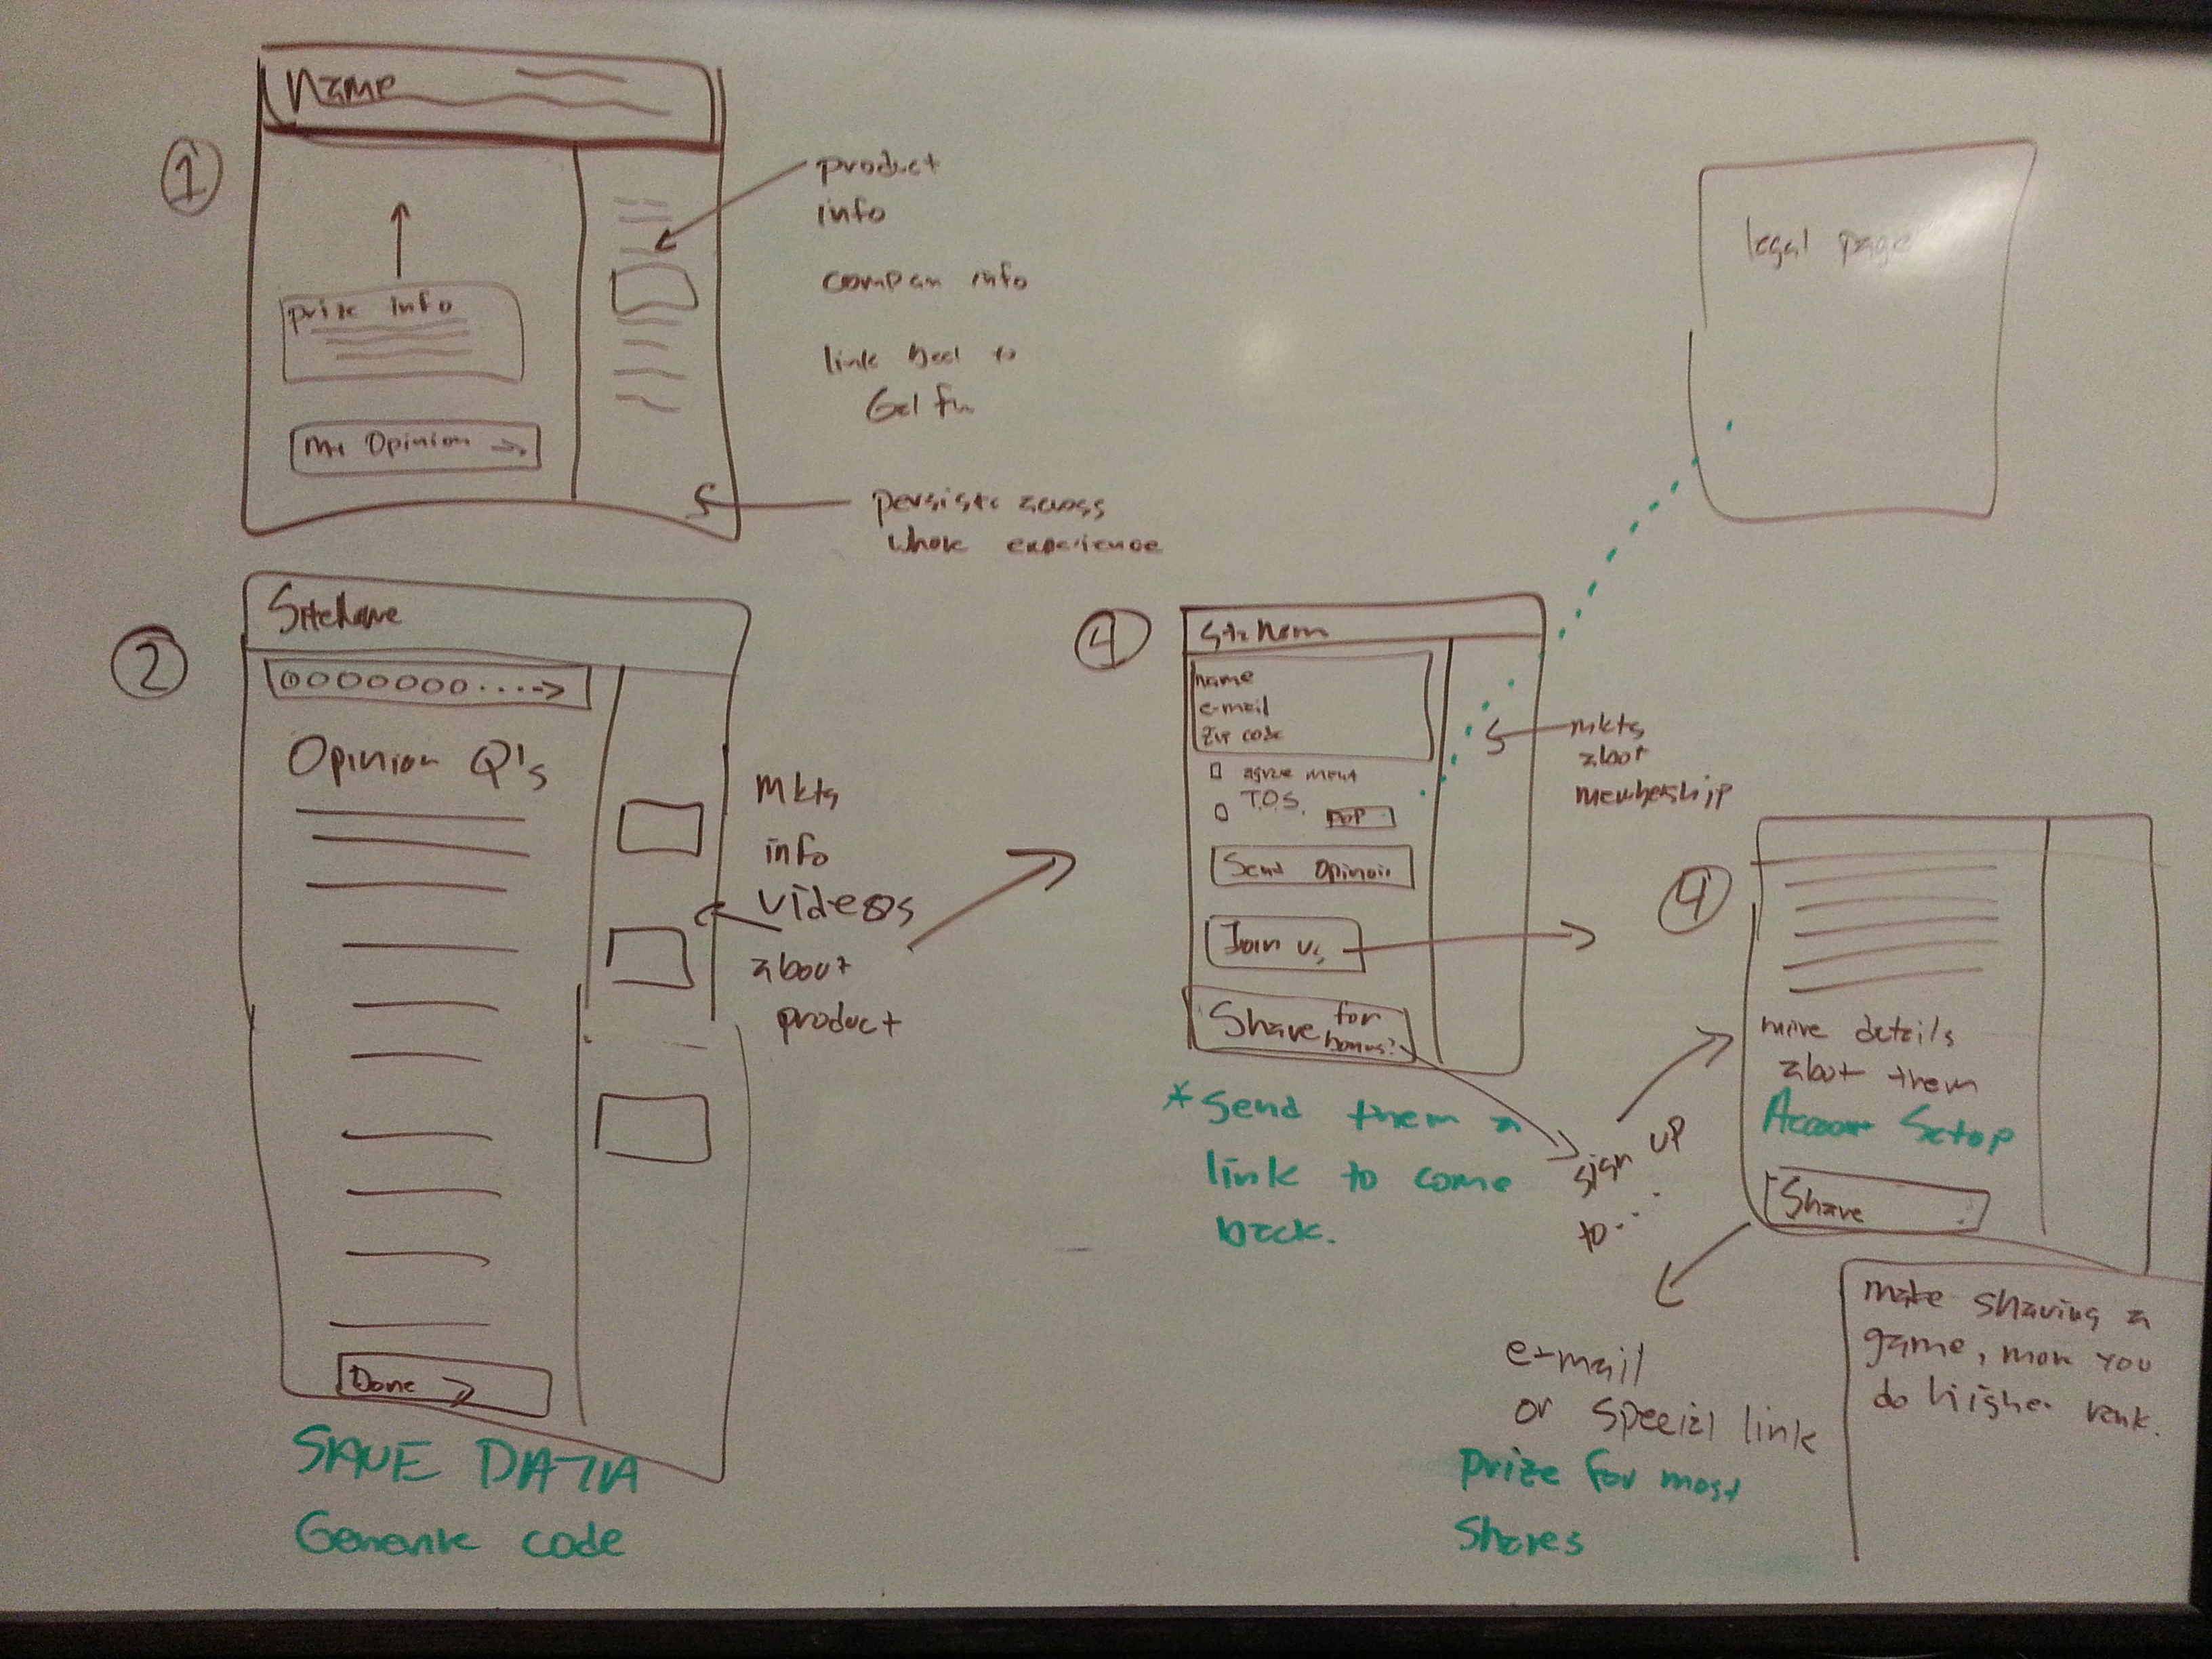 1
Name
prize info
My Opinion →
product
info
compan info
link to
persists across
whole experience
legal page
2
SiteName
Opinion Q's
mktg
info
videos
about
product
Done →
SAVE DATA
Generate code
4
name
e-mail
Zip code
agreement
T.O.S.
POP
Send Opinion
Join Us
Share for
bonus?
mktg
about
membership
* Send them a
link to come
back.
sign up
to...
4
more details
about them
Account Setup
Share
e-mail
or special link
prize for most
shares
make sharing a
game, more you
do higher rank.